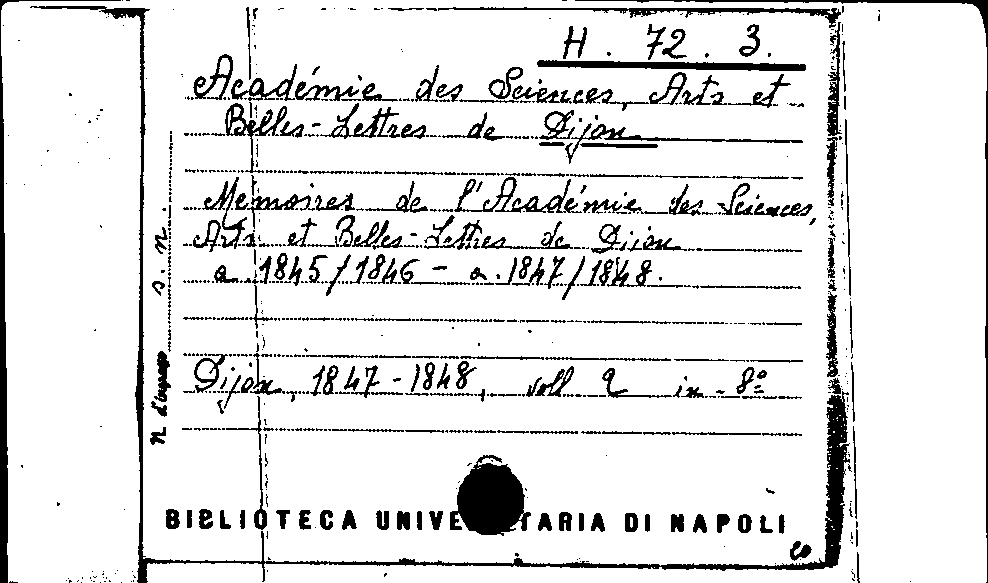 H. 72. 3.
Académie des Sciences, Arts et
Belles-Lettres de Dijon
Memoires de l'Académie des Sciences,
Arts et Belles-Lettres de Dijon
a. 1845/1846 - a. 1847/1848.
Dijon, 1847-1848, voll 2 in-8º
s. n.
N. d'ingresso
BIBLIOTECA UNIVE TARIA DI NAPOLI